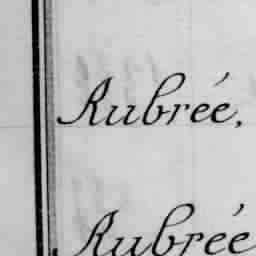 Rubrée,
Rubrée